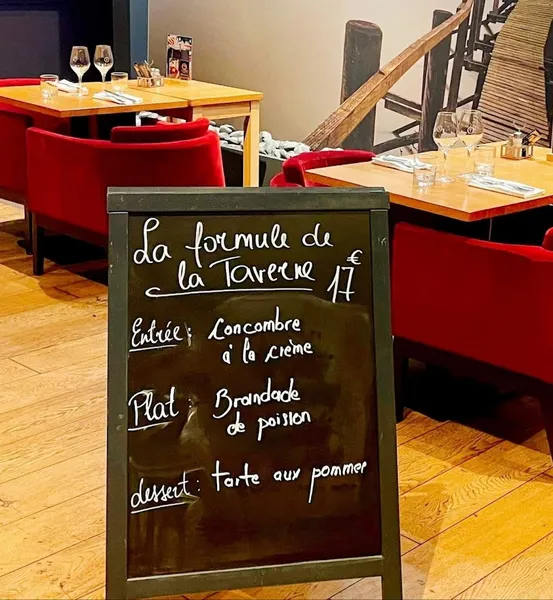 La formule de
la Taverne 17€
Entrée : Concombre
à la crème
Plat : Brandade
de poisson
dessert : tarte aux pommes